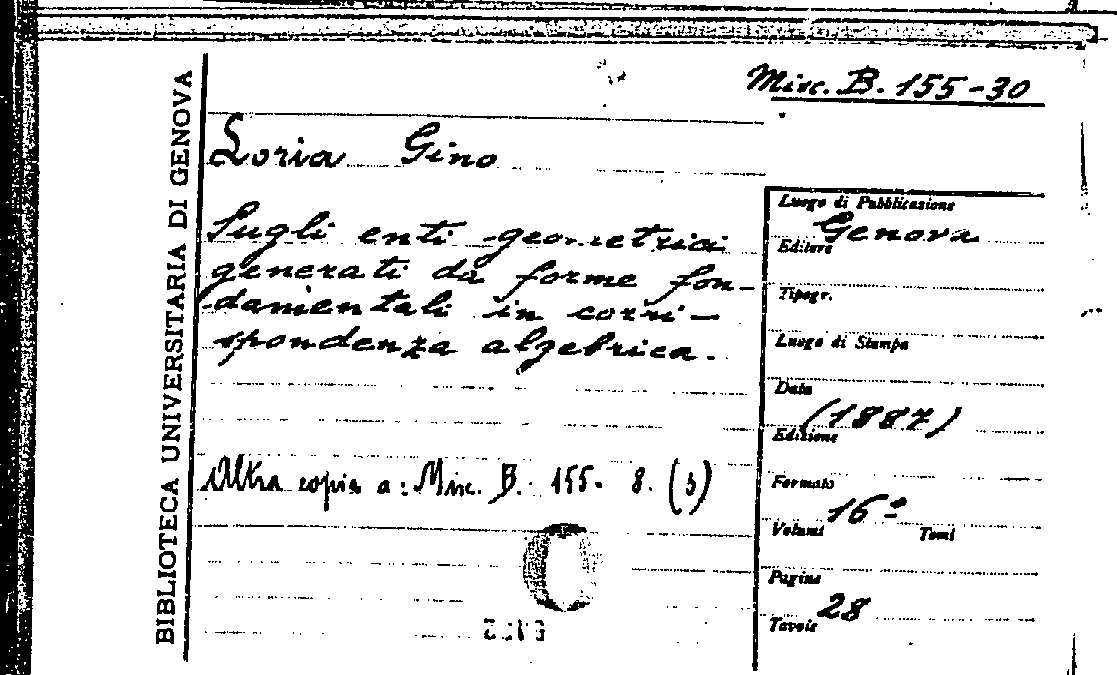 Misc. B. 155-30
BIBLIOTECA UNIVERSITARIA DI GENOVA
Loria Gino
Sugli enti geometrici
generati da forme fon-
damentali in corri-
spondenza algebrica.
Altra copia a: Misc. B. 155- 8. (3)
Luogo di Pubblicazione
Genova
Editore
Tipogr.
Luogo di Stampa
Data
(1887)
Edizione
Formato
16º
Volumi Tomi
Pagine
28
Tavole